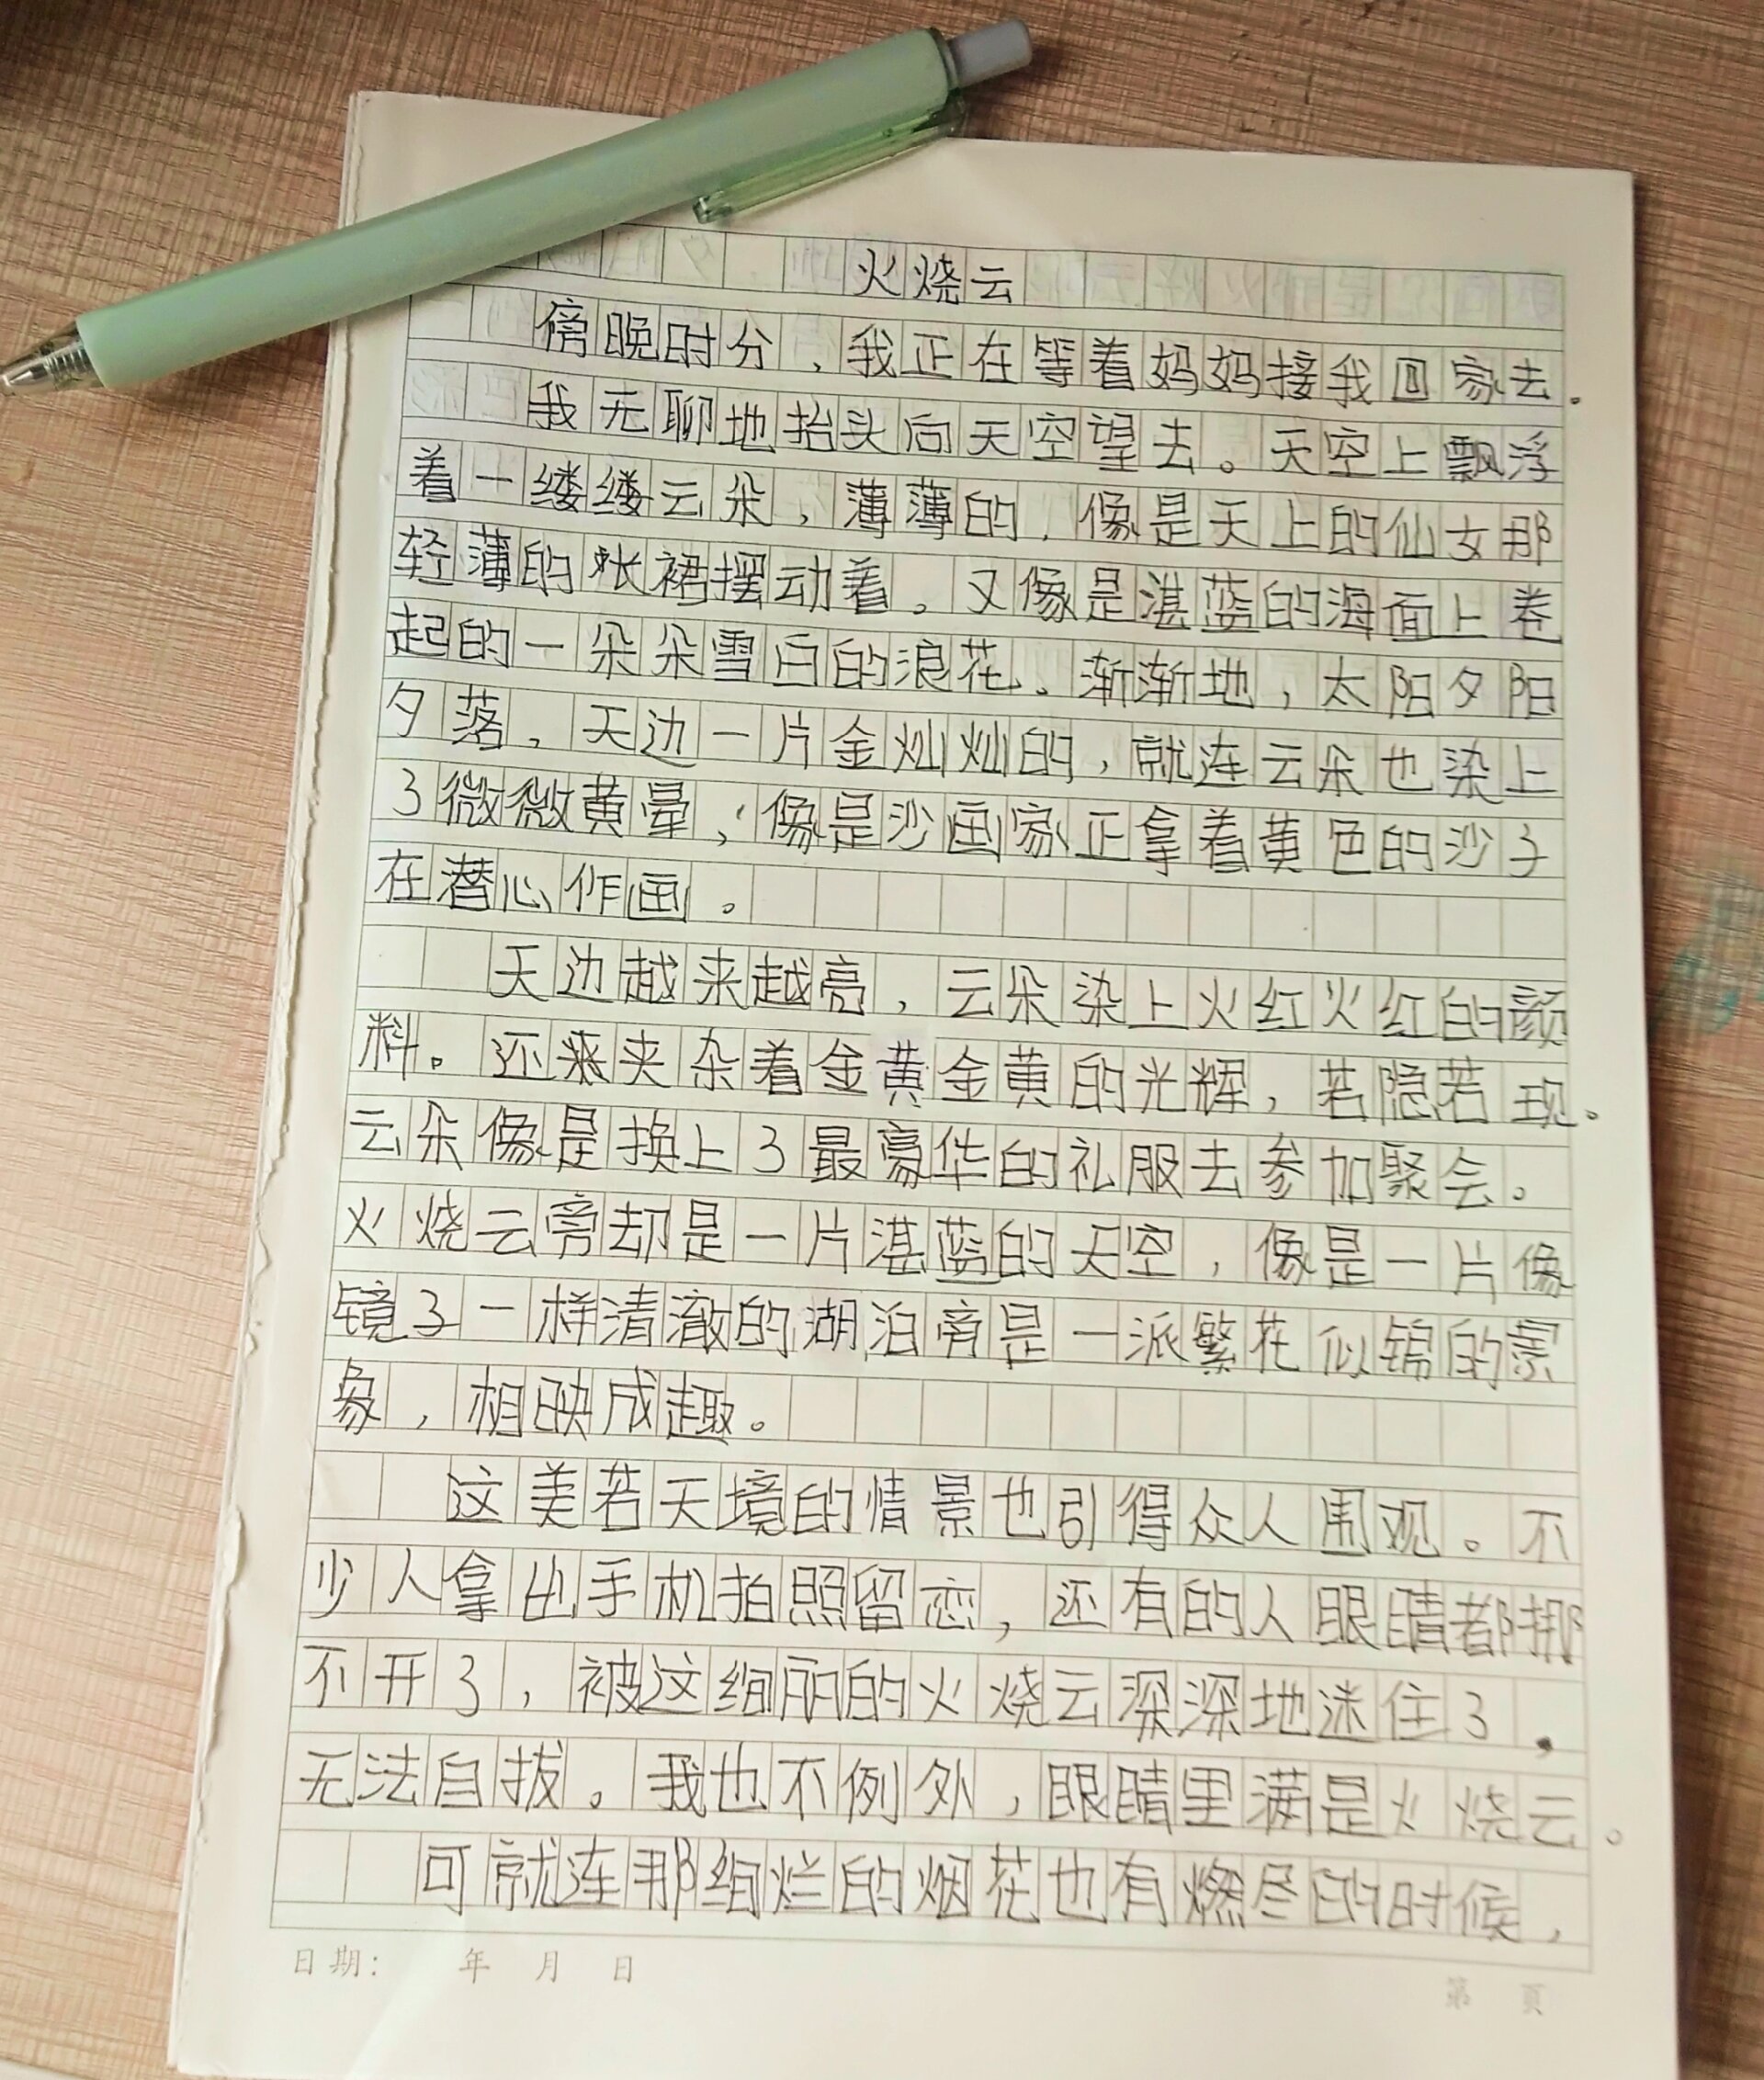 火烧云
傍晚时分，我正在等着妈妈接我回家去。
我无聊地抬头向天空望去。天空上飘浮
着一缕缕云朵，薄薄的，像是天上的仙女那
轻薄的帐裙摆动着。又像是湛蓝的海面上卷
起的一朵朵雪白的浪花。渐渐地，太阳夕阳
夕落，天边一片金灿灿的，就连云朵也染上
了微微黄晕，像是沙画家正拿着黄色的沙子
在潜心作画。
天边越来越亮，云朵染上火红火红的颜
料。还来夹杂着金黄金黄的光辉，若隐若现。
云朵像是换上了最豪华的礼服去参加聚会。
火烧云旁却是一片湛蓝的天空，像是一片像
镜子一样清澈的湖泊旁是一派繁花似锦的景
象，相映成趣。
这美若天境的情景也引得众人围观。不
少人拿出手机拍照留恋，还有的人眼睛都挪
不开了，被这绚丽的火烧云深深地迷住了，
无法自拔。我也不例外，眼睛里满是火烧云。
可就连那绚烂的烟花也有燃尽的时候，
日期： 年 月 日
第 页